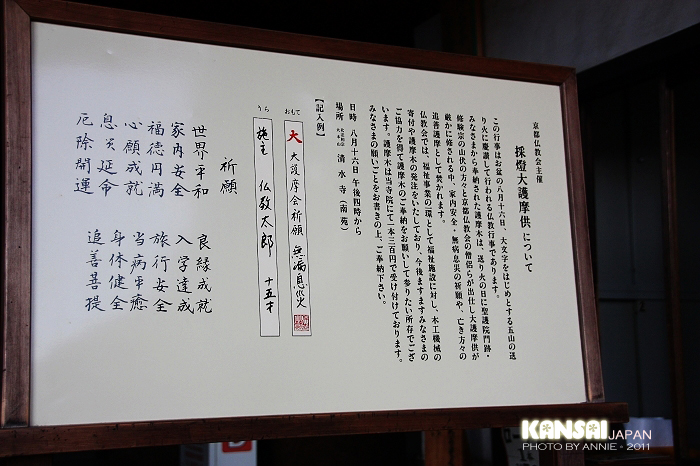 京都仏教会主催
採燈大護摩供 について
この行事はお盆の八月十六日、大文字をはじめとする五山の送
り火に慶讃して行われる仏教行事であります。
みなさまから奉納された護摩木は、送り火の日に聖護院門跡・
修験宗の山伏の方々と京都仏教会の僧侶らが出仕し大護摩供が
厳かに修される中、家内安全・無病息災の祈願や、亡き方々の
追善護摩として焚かれます。
仏教会では、福祉事業の一環として福祉施設に対し、木工機械の
寄付や護摩木の発注をいたしており、今後ますますみなさまの
ご協力を得て護摩木のご奉納をお願いして参りたい所存でござ
います。護摩木は当寺院にて一本三百円で受け付けております。
みなさまの願いごとをお書きの上、ご奉納下さい。
日時 八月十六日午後四時から
場所 清水寺(南苑)
【記入例】
おもて
大 大護摩会祈願 無病息災
うら
施主 仏教太郎 十五才
祈願
世界平和 良縁成就
家内安全 入学達成
福徳円満 旅行安全
心願成就 当病平癒
息災延命 身体健全
厄除開運 追善菩提
KANSAI JAPAN
PHOTO BY ANNIE - 2011